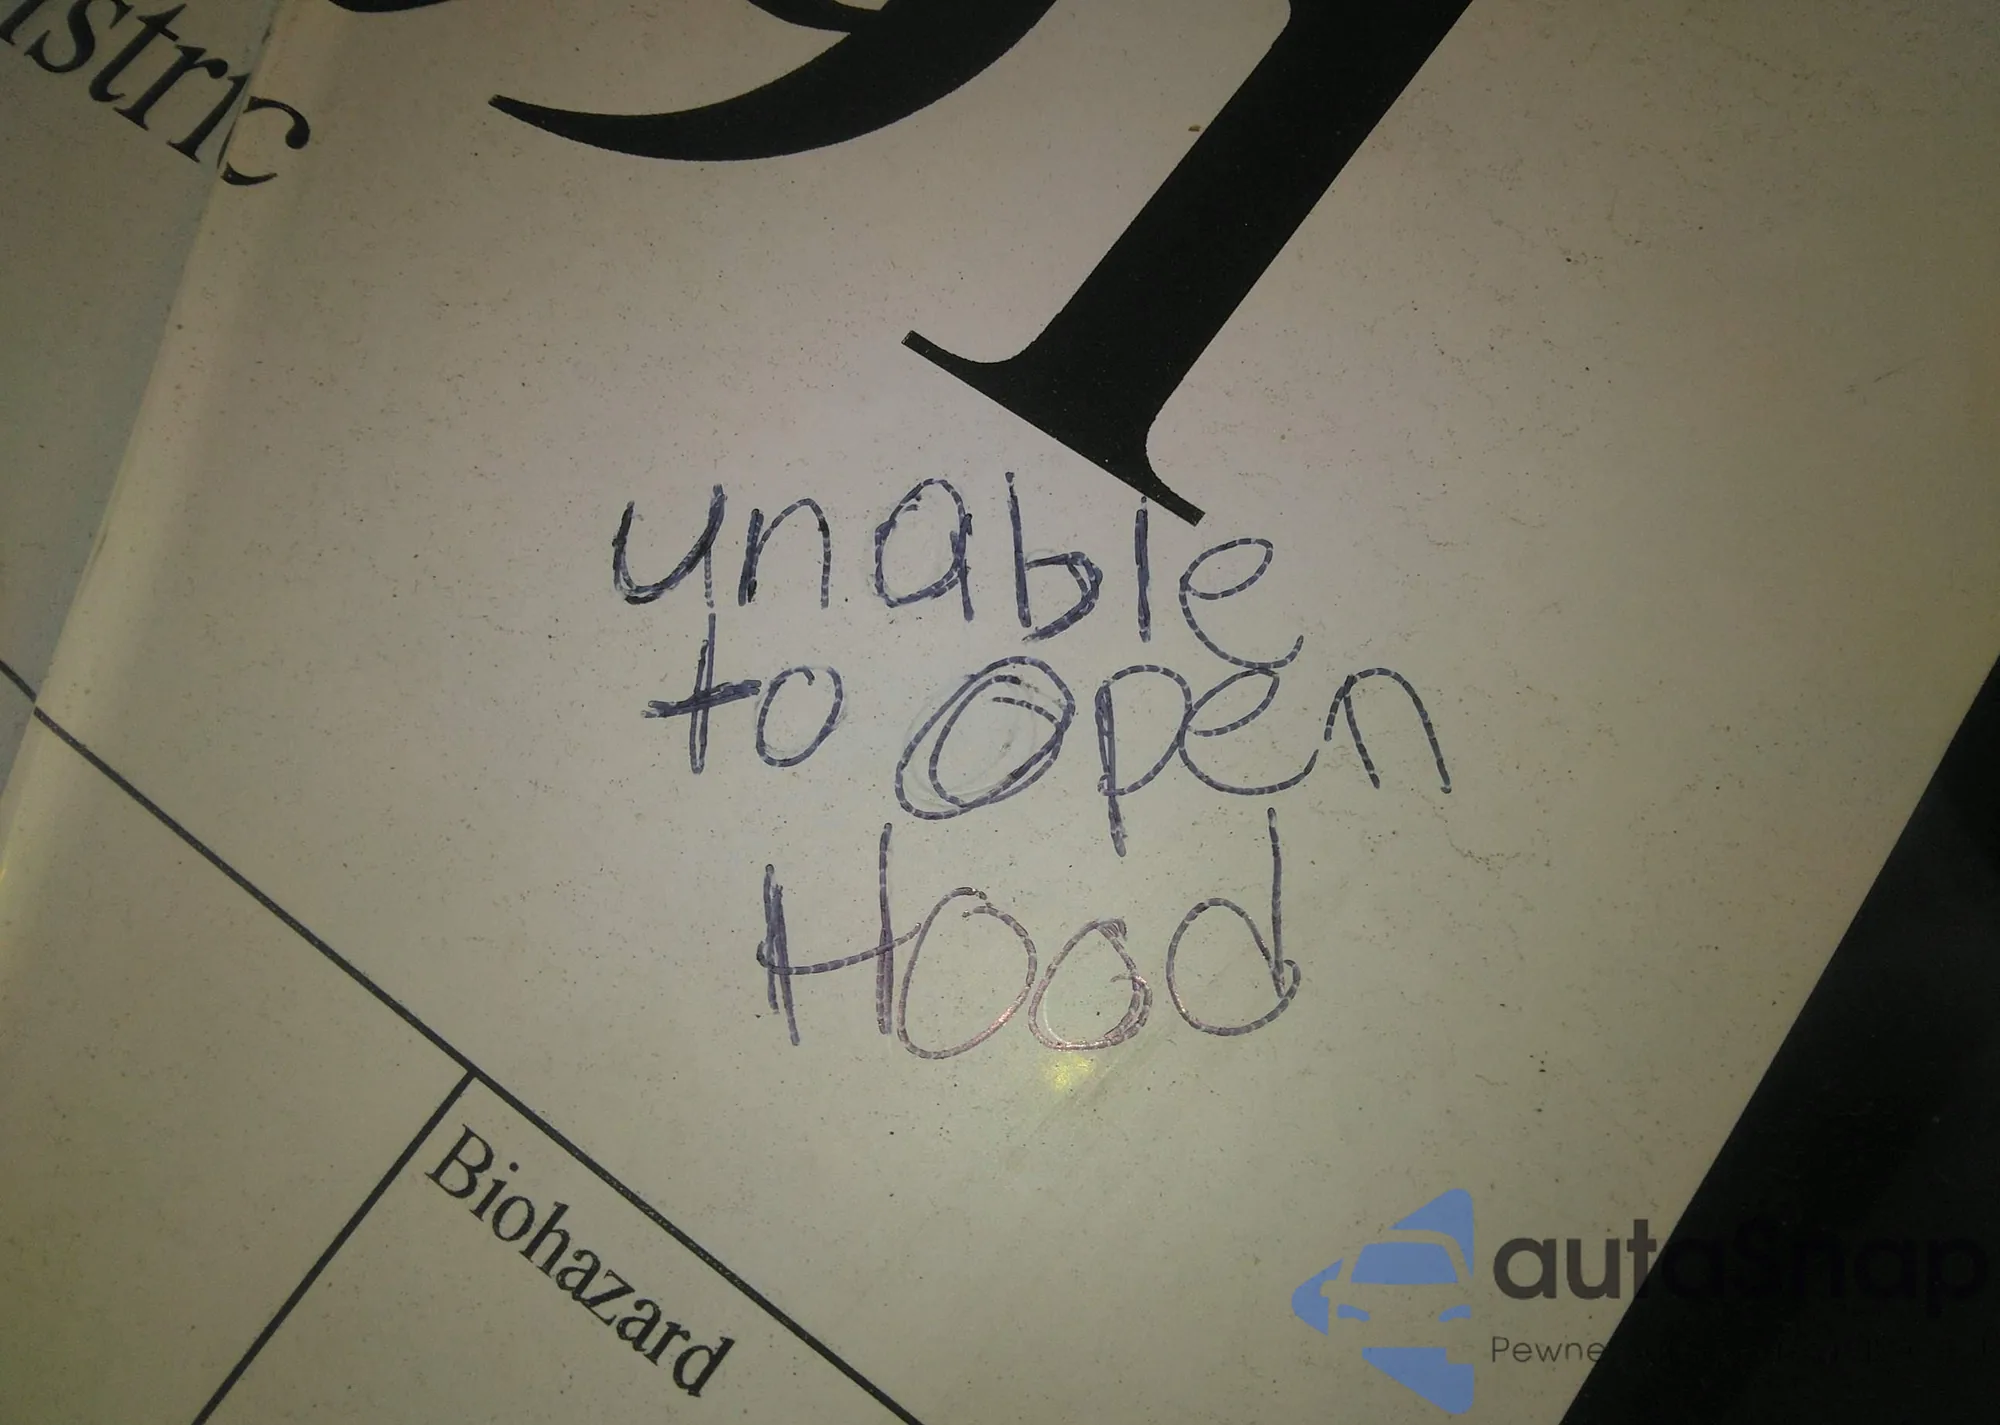 istric
91
unable
to open
Hood
Biohazard
autaSnap
Pewne